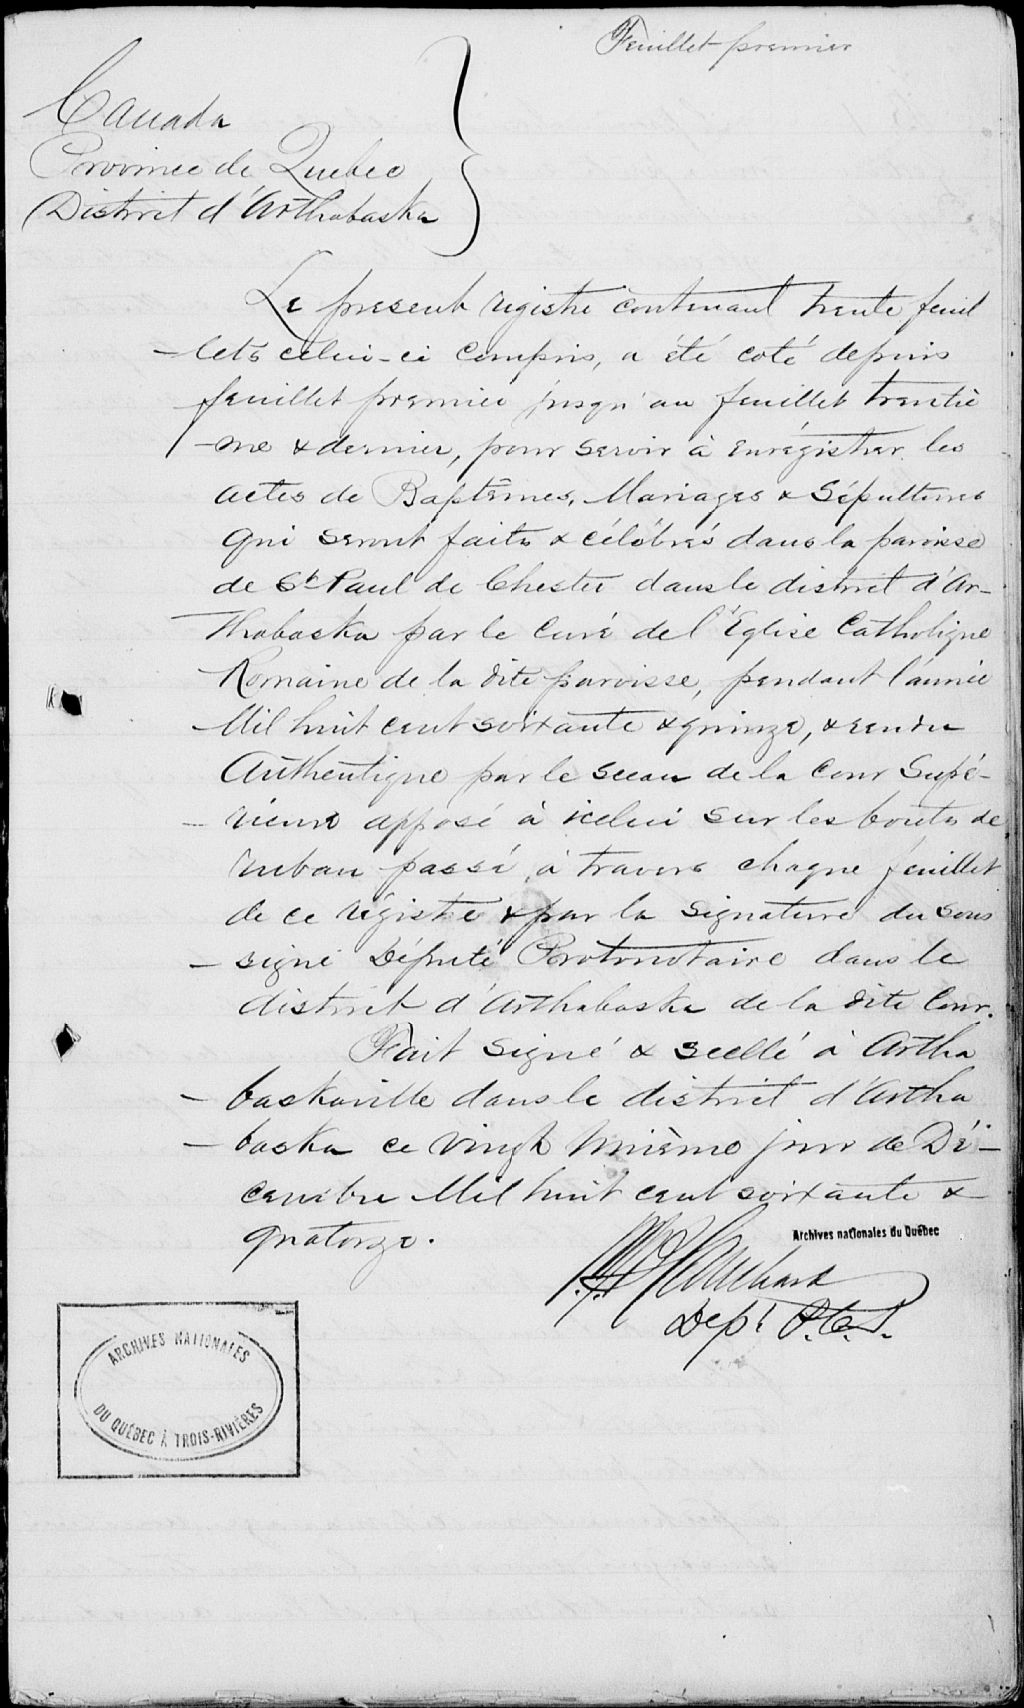 Feuillet premier
Canada
Province de Quebec
District d'Arthabaska
Le present registre contenant trente feuil
-lets celui-ci compris, a été coté depuis
feuillet premier jusqu'au feuillet trentiè
-me & dernier, pour servir à enrégistrer les
actes de Baptêmes, Mariages & Sépultures
qui seront faits & célébrés dans la paroisse
de St Paul de Chester dans le district d'Ar-
thabaska par le Curé de l'Eglise Catholique
Romaine de la dite paroisse, pendant l'année
Mil huit cent soixante & quinze, & rendu
Authentique par le sceau de la Cour Supé-
-rieure apposé à icelui sur les bouts de
ruban passé à travers chaque feuillet
de ce régistre & par la signature du sous
-signé Député Protonotaire dans le
district d'Arthabaska de la dite Cour.
Fait signé & scellé à Artha
-baskaville dans le district d'Artha
-baska ce vingt unième jour de Dé-
cembre Mil huit cent soixante &
quatorze.
Archives nationales du Québec
Dept P.C.S.
ARCHIVES NATIONALES
DU QUÉBEC À TROIS-RIVIÈRES